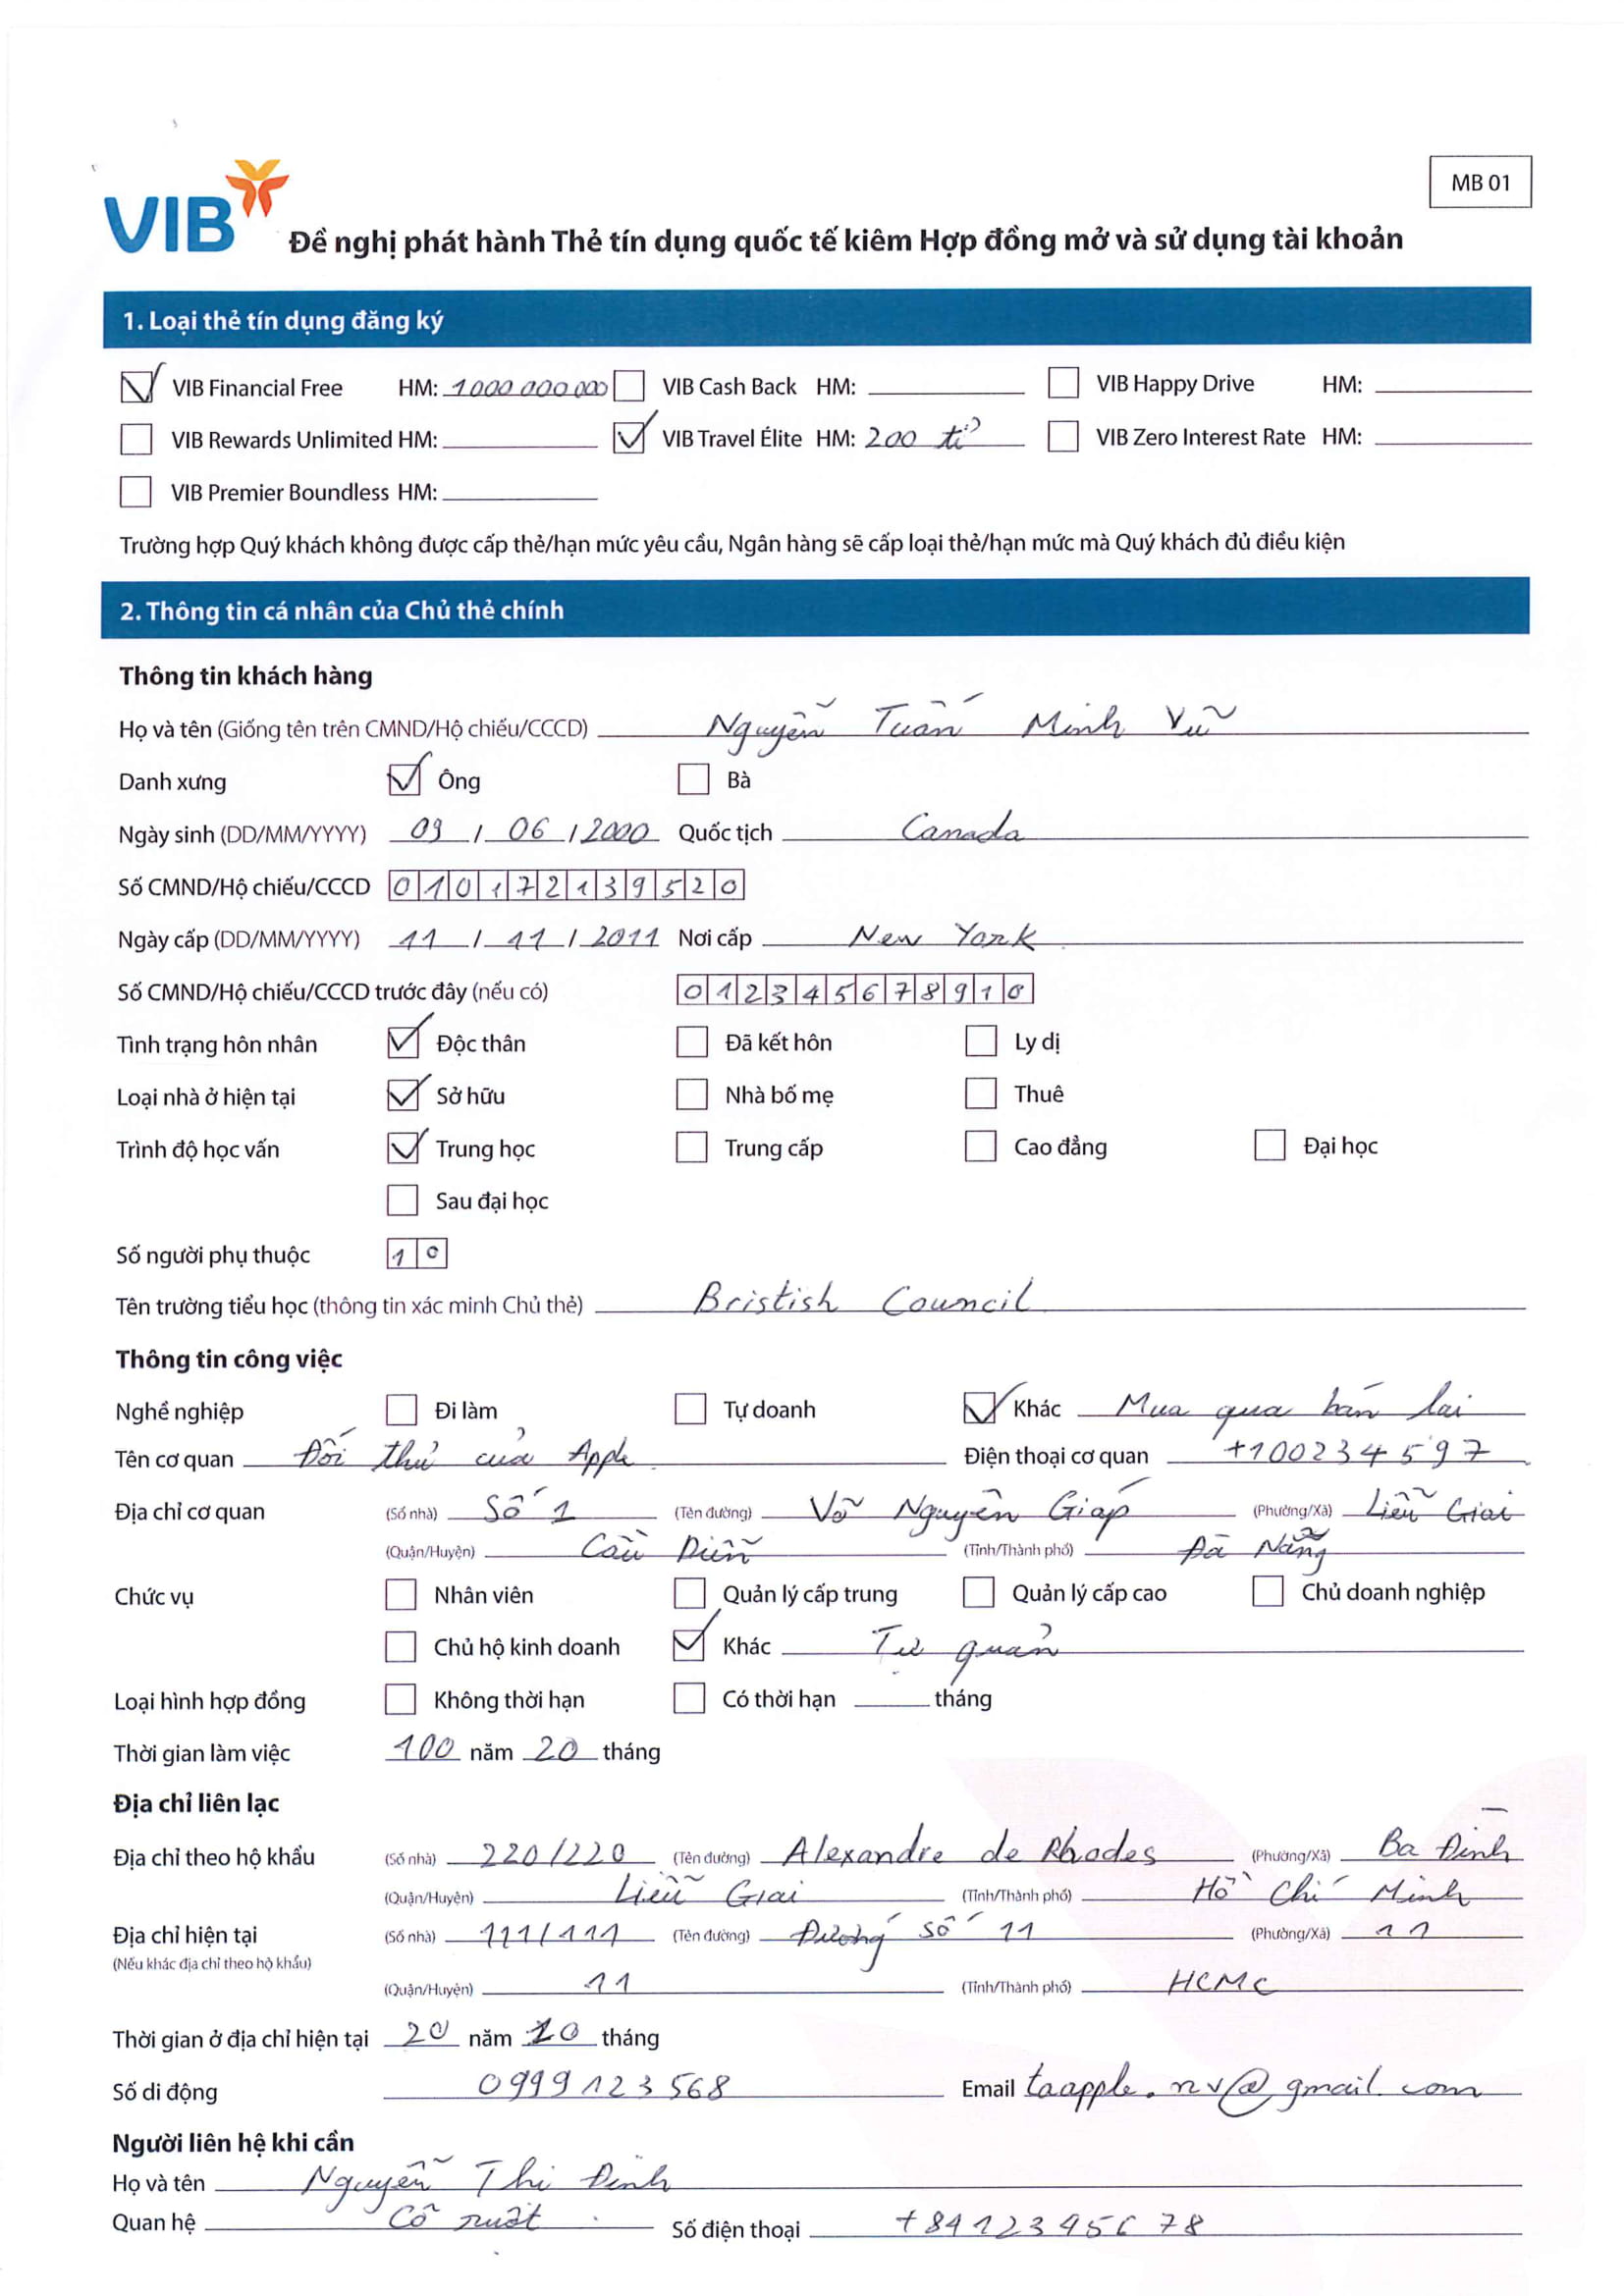 MB 01
VIB
Đề nghị phát hành Thẻ tín dụng quốc tế kiêm Hợp đồng mở và sử dụng tài khoản
1. Loại thẻ tín dụng đăng ký
VIB Financial Free HM: 1000 000 000 VIB Cash Back HM: VIB Happy Drive HM:
VIB Rewards Unlimited HM: VIB Travel Élite HM: 200 tỉ VIB Zero Interest Rate HM:
VIB Premier Boundless HM:
Trường hợp Quý khách không được cấp thẻ/hạn mức yêu cầu, Ngân hàng sẽ cấp loại thẻ/hạn mức mà Quý khách đủ điều kiện
2. Thông tin cá nhân của Chủ thẻ chính
Thông tin khách hàng
Họ và tên (Giống tên trên CMND/Hộ chiếu/CCCD) Nguyễn Tuấn Minh Vũ
Danh xưng Ông Bà
Ngày sinh (DD/MM/YYYY) 09 / 06 / 2000 Quốc tịch Canada
Số CMND/Hộ chiếu/CCCD 010172139520
Ngày cấp (DD/MM/YYYY) 11 / 11 / 2011 Nơi cấp New York
Số CMND/Hộ chiếu/CCCD trước đây (nếu có) 012345678910
Tình trạng hôn nhân Độc thân Đã kết hôn Ly dị
Loại nhà ở hiện tại Sở hữu Nhà bố mẹ Thuê
Trình độ học vấn Trung học Trung cấp Cao đẳng Đại học
Sau đại học
Số người phụ thuộc 10
Tên trường tiểu học (thông tin xác minh Chủ thẻ) Bristish Council
Thông tin công việc
Nghề nghiệp Đi làm Tự doanh Khác Mua qua bán lại
Tên cơ quan Đối thủ của Apple Điện thoại cơ quan +100234597
Địa chỉ cơ quan (Số nhà) Số 1 (Tên đường) Võ Nguyên Giáp (Phường/Xã) Liễu Giai
(Quận/Huyện) Cầu Diễn (Tỉnh/Thành phố) Đà Nẵng
Chức vụ Nhân viên Quản lý cấp trung Quản lý cấp cao Chủ doanh nghiệp
Chủ hộ kinh doanh Khác Tự quản
Loại hình hợp đồng Không thời hạn Có thời hạn tháng
Thời gian làm việc 100 năm 20 tháng
Địa chỉ liên lạc
Địa chỉ theo hộ khẩu (Số nhà) 220/220 (Tên đường) Alexandre de Rhodes (Phường/Xã) Ba Đình
(Quận/Huyện) Liễu Giai (Tỉnh/Thành phố) Hồ Chí Minh
Địa chỉ hiện tại (Số nhà) 111/111 (Tên đường) Đường số 11 (Phường/Xã) 11
(Nếu khác địa chỉ theo hộ khẩu)
(Quận/Huyện) 11 (Tỉnh/Thành phố) HCMC
Thời gian ở địa chỉ hiện tại 20 năm 10 tháng
Số di động 0999123568 Email taapple.nv@gmail.com
Người liên hệ khi cần
Họ và tên Nguyễn Thi Đinh
Quan hệ Cô ruột Số điện thoại +8412345678